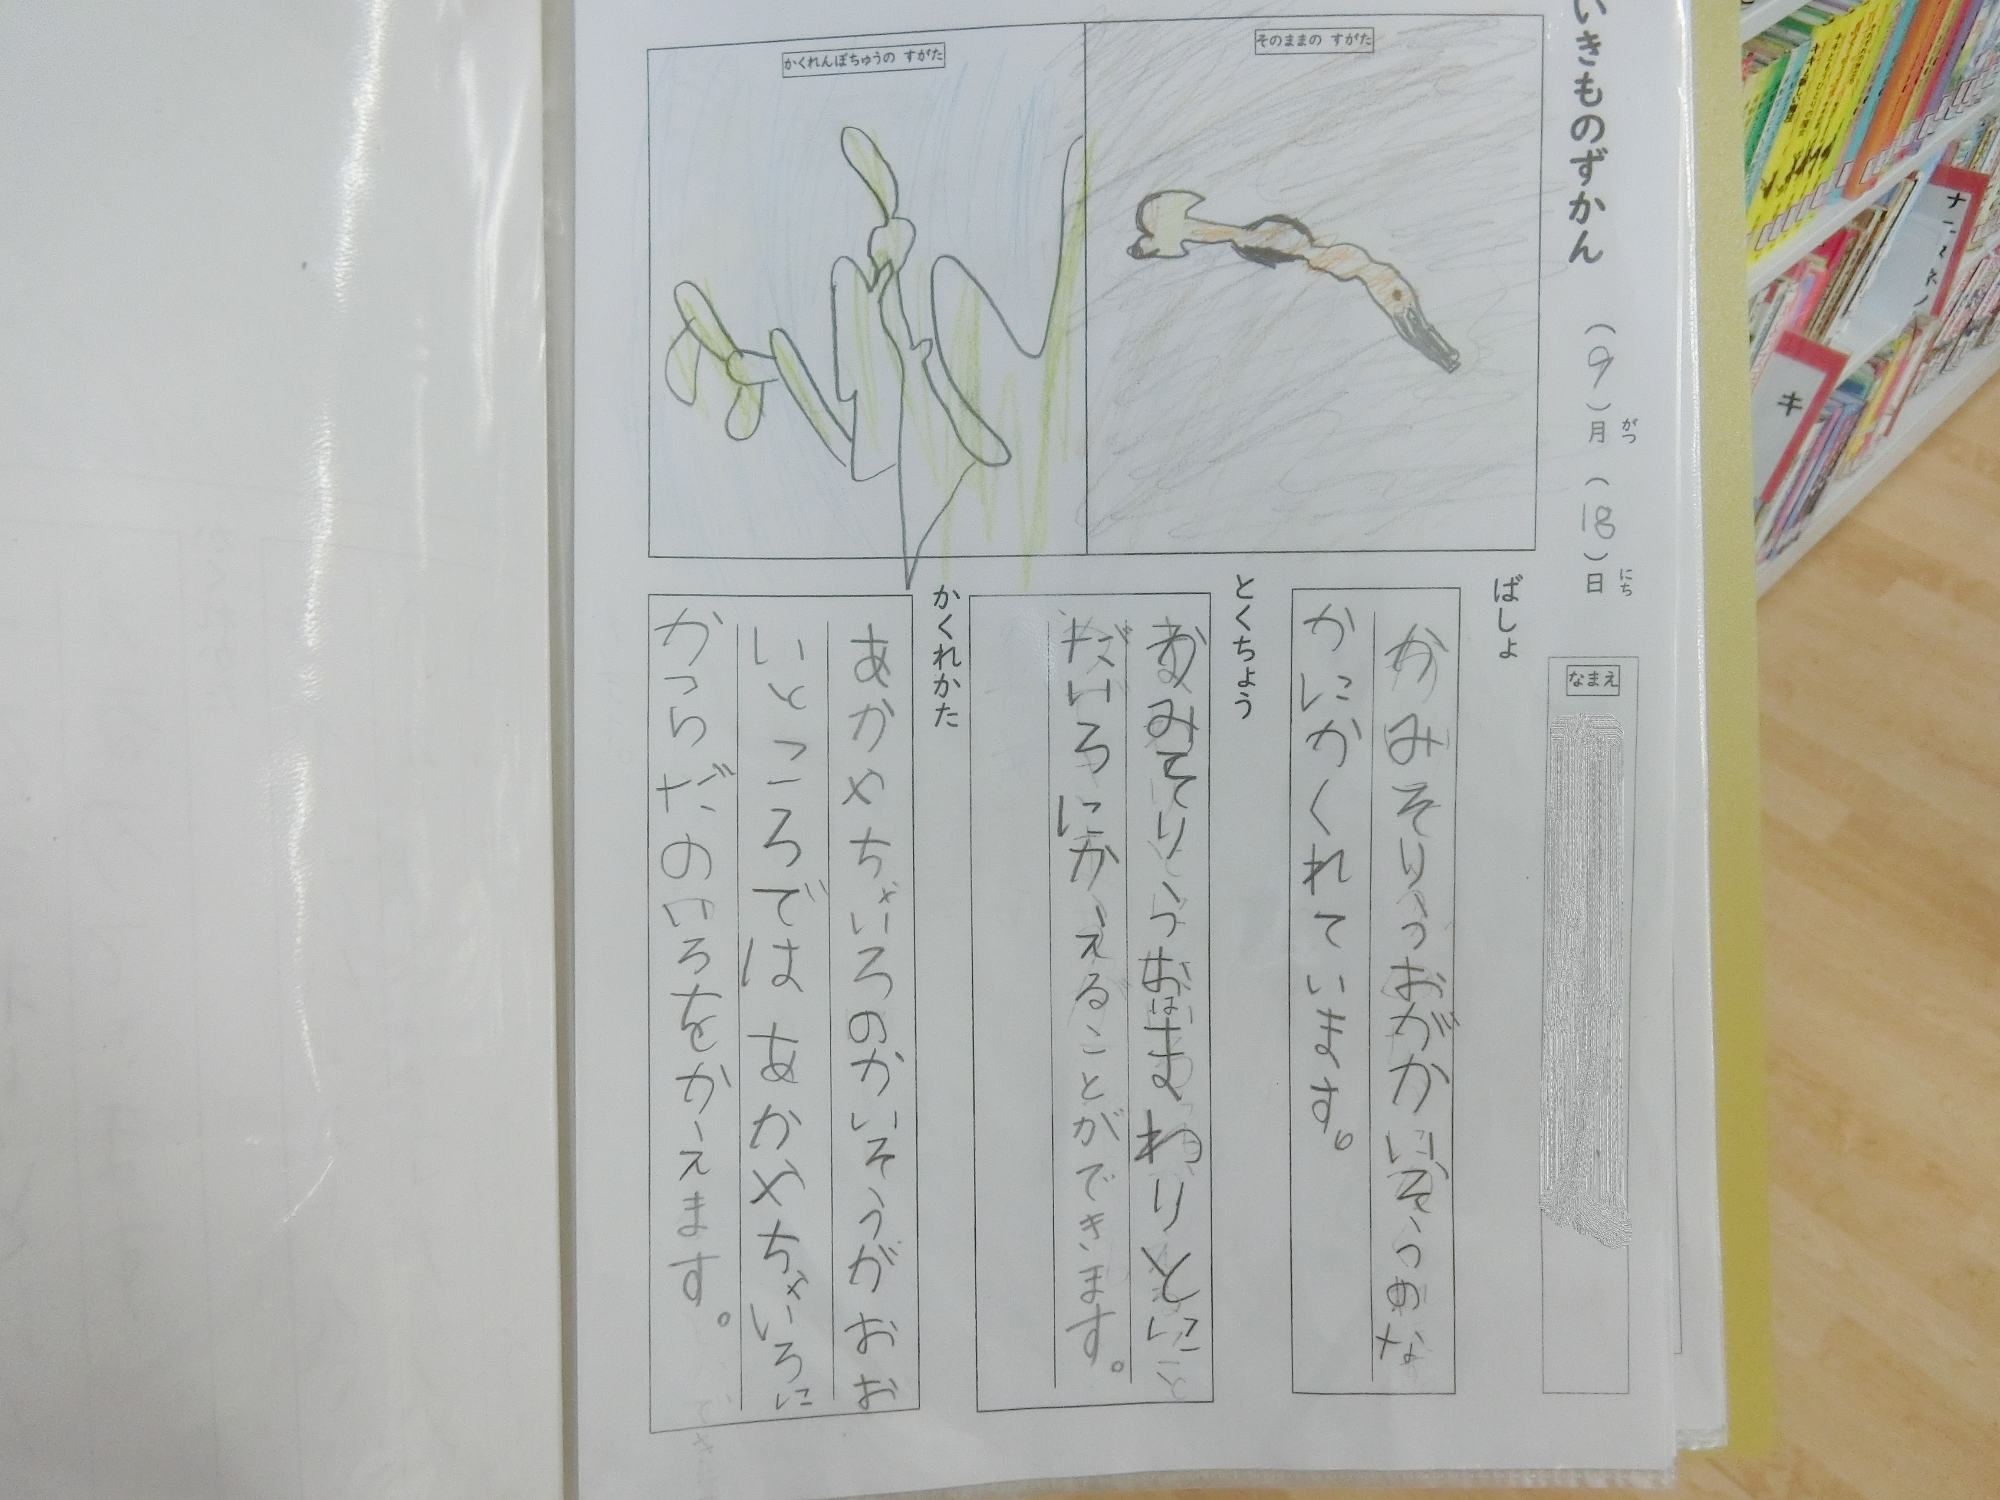 いきものずかん
(9)月(18)日
がつ
にち
なまえ
そのままの すがた
かくれんぼちゅうの すがた
ばしょ
かみそりうおがかいそうのな
かにかくれています。
とくちょう
かみそりうおはまわりとにこ
だいろにかえることができます。
かくれかた
あかやちゃいろのかいそうがおお
いところではあかやちゃいろに
からだのいろをかえます。
キ